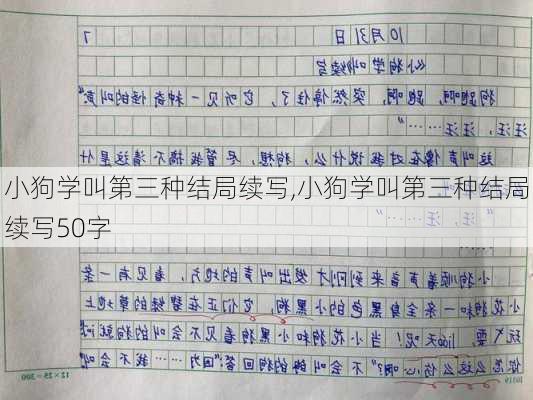 10月31日
《小狗学叫》续写
狗跑啊，跑啊，突然停住了，它听见一种奇怪的叫声"
汪，汪汪……"
这叫声像在对我说什么，小狗想，尽管我搞不清这是什
小狗学叫第三种结局续写,小狗学叫第三种结局
续写50字
小狗顺着声音来到刚才发出叫声的地方，看见有一条
小花狗和一条全身黑色的小黑狗，它们正在碧绿的草地上
玩耍，呢！当小花狗和小黑狗看见不会叫的狗就问
你怎么这么伤心啊?"不会叫的狗回答："因为……我不会叫
12×25=300